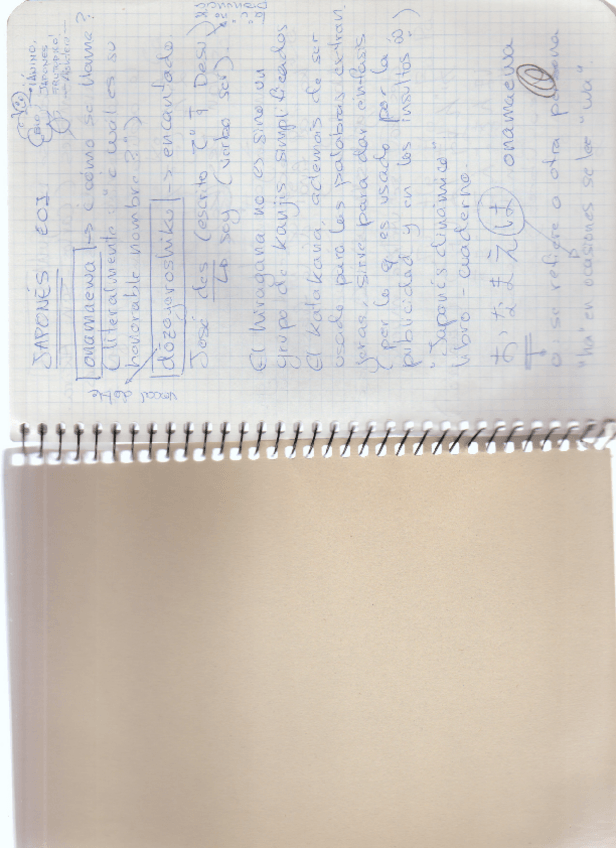 JAPONÉS EOI
onamaewa -> ¿cómo se llama?
(literalmente: "¿cuál es su
honorable nombre?")
dōzoyoroshiko -> encantado.
José des (escrito です Desu)
soy (verbo ser).
El hiragana no es sino un
grupo de kanjis simplificados
El Katakana, además de ser
usado para las palabras extran
jeras, sirve para dar énfasis
(por lo q es usado por la
publicidad y en los insultos)
"Japonés dinámico"
libro-cuaderno.
おなまえは onamaewa
o: se refiere a otra persona
"ha" en ocasiones se lee "wa"
vocal